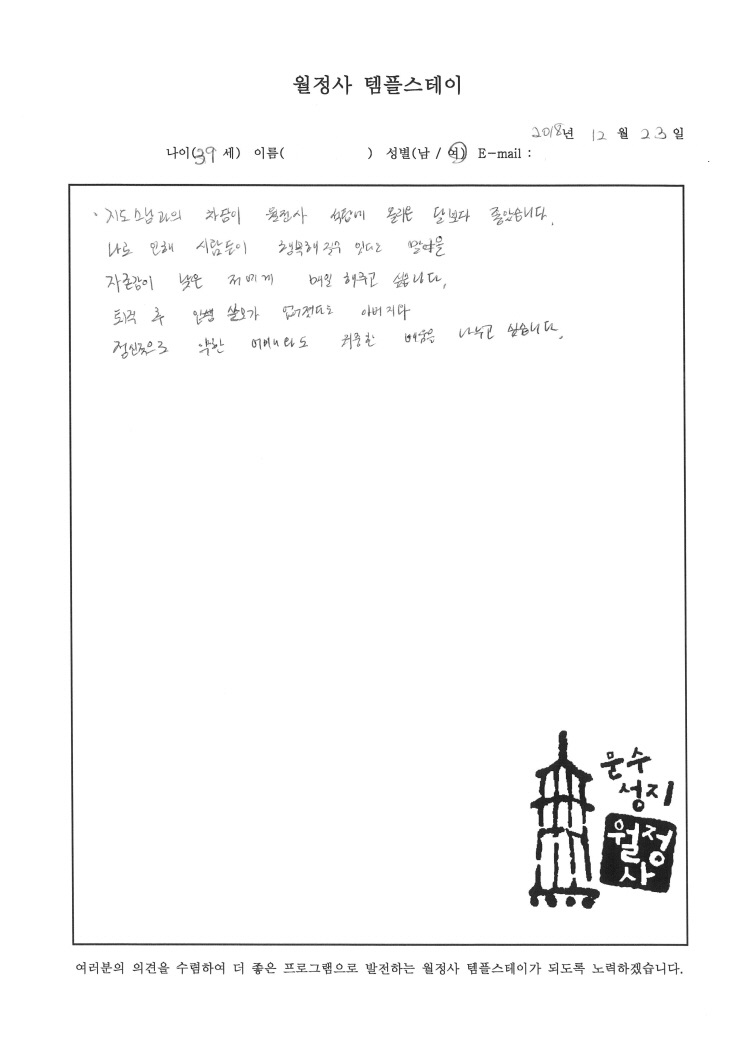 월정사 템플스테이
2018년 12 월 23 일
나이(39 세) 이름( ) 성별(남 / 여) E-mail :
· 지도스님과의 차담이 월정사 석탑에 걸리는 달보다 좋았습니다.
나로 인해 사람들이 행복해질수 있다는 말씀을
자존감이 낮은 저에게 매일 해주고 싶습니다.
퇴직 후 인생 쓸모가 없어졌다는 아버지와
정신적으로 약한 어머니와도 귀중한 배움을 나누고 싶습니다.
문수
성지
월정
사
여러분의 의견을 수렴하여 더 좋은 프로그램으로 발전하는 월정사 템플스테이가 되도록 노력하겠습니다.